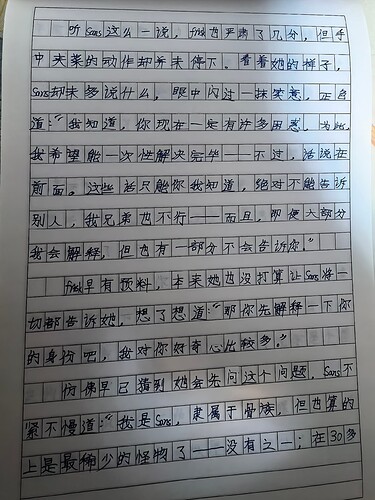 听Sans这么一说，frisk也严肃了几分，但手
中夹菜的动作却并未停下。看着她的样子，
Sans却未多说什么，眼中闪过一抹笑意，正色
道：“我知道，你现在一定有许多困惑，
我希望能一次性解决完毕——不过，话说在
前面。这些话只能你我知道，绝对不能告诉
别人，我兄弟也不行——而且，即使大部分
我会解释，但也有一部分不会告诉你。”
frisk早有预料，本来她也没打算让Sans将一
切都告诉她，想了想道：“那你先解释一下你
的身份吧，我对你好奇心比较多。”
仿佛早已猜到她会先问这个问题，Sans不
紧不慢道：“我是Sans，隶属于骨族，但也算的
上是最稀少的怪物了——没有之一；在30多